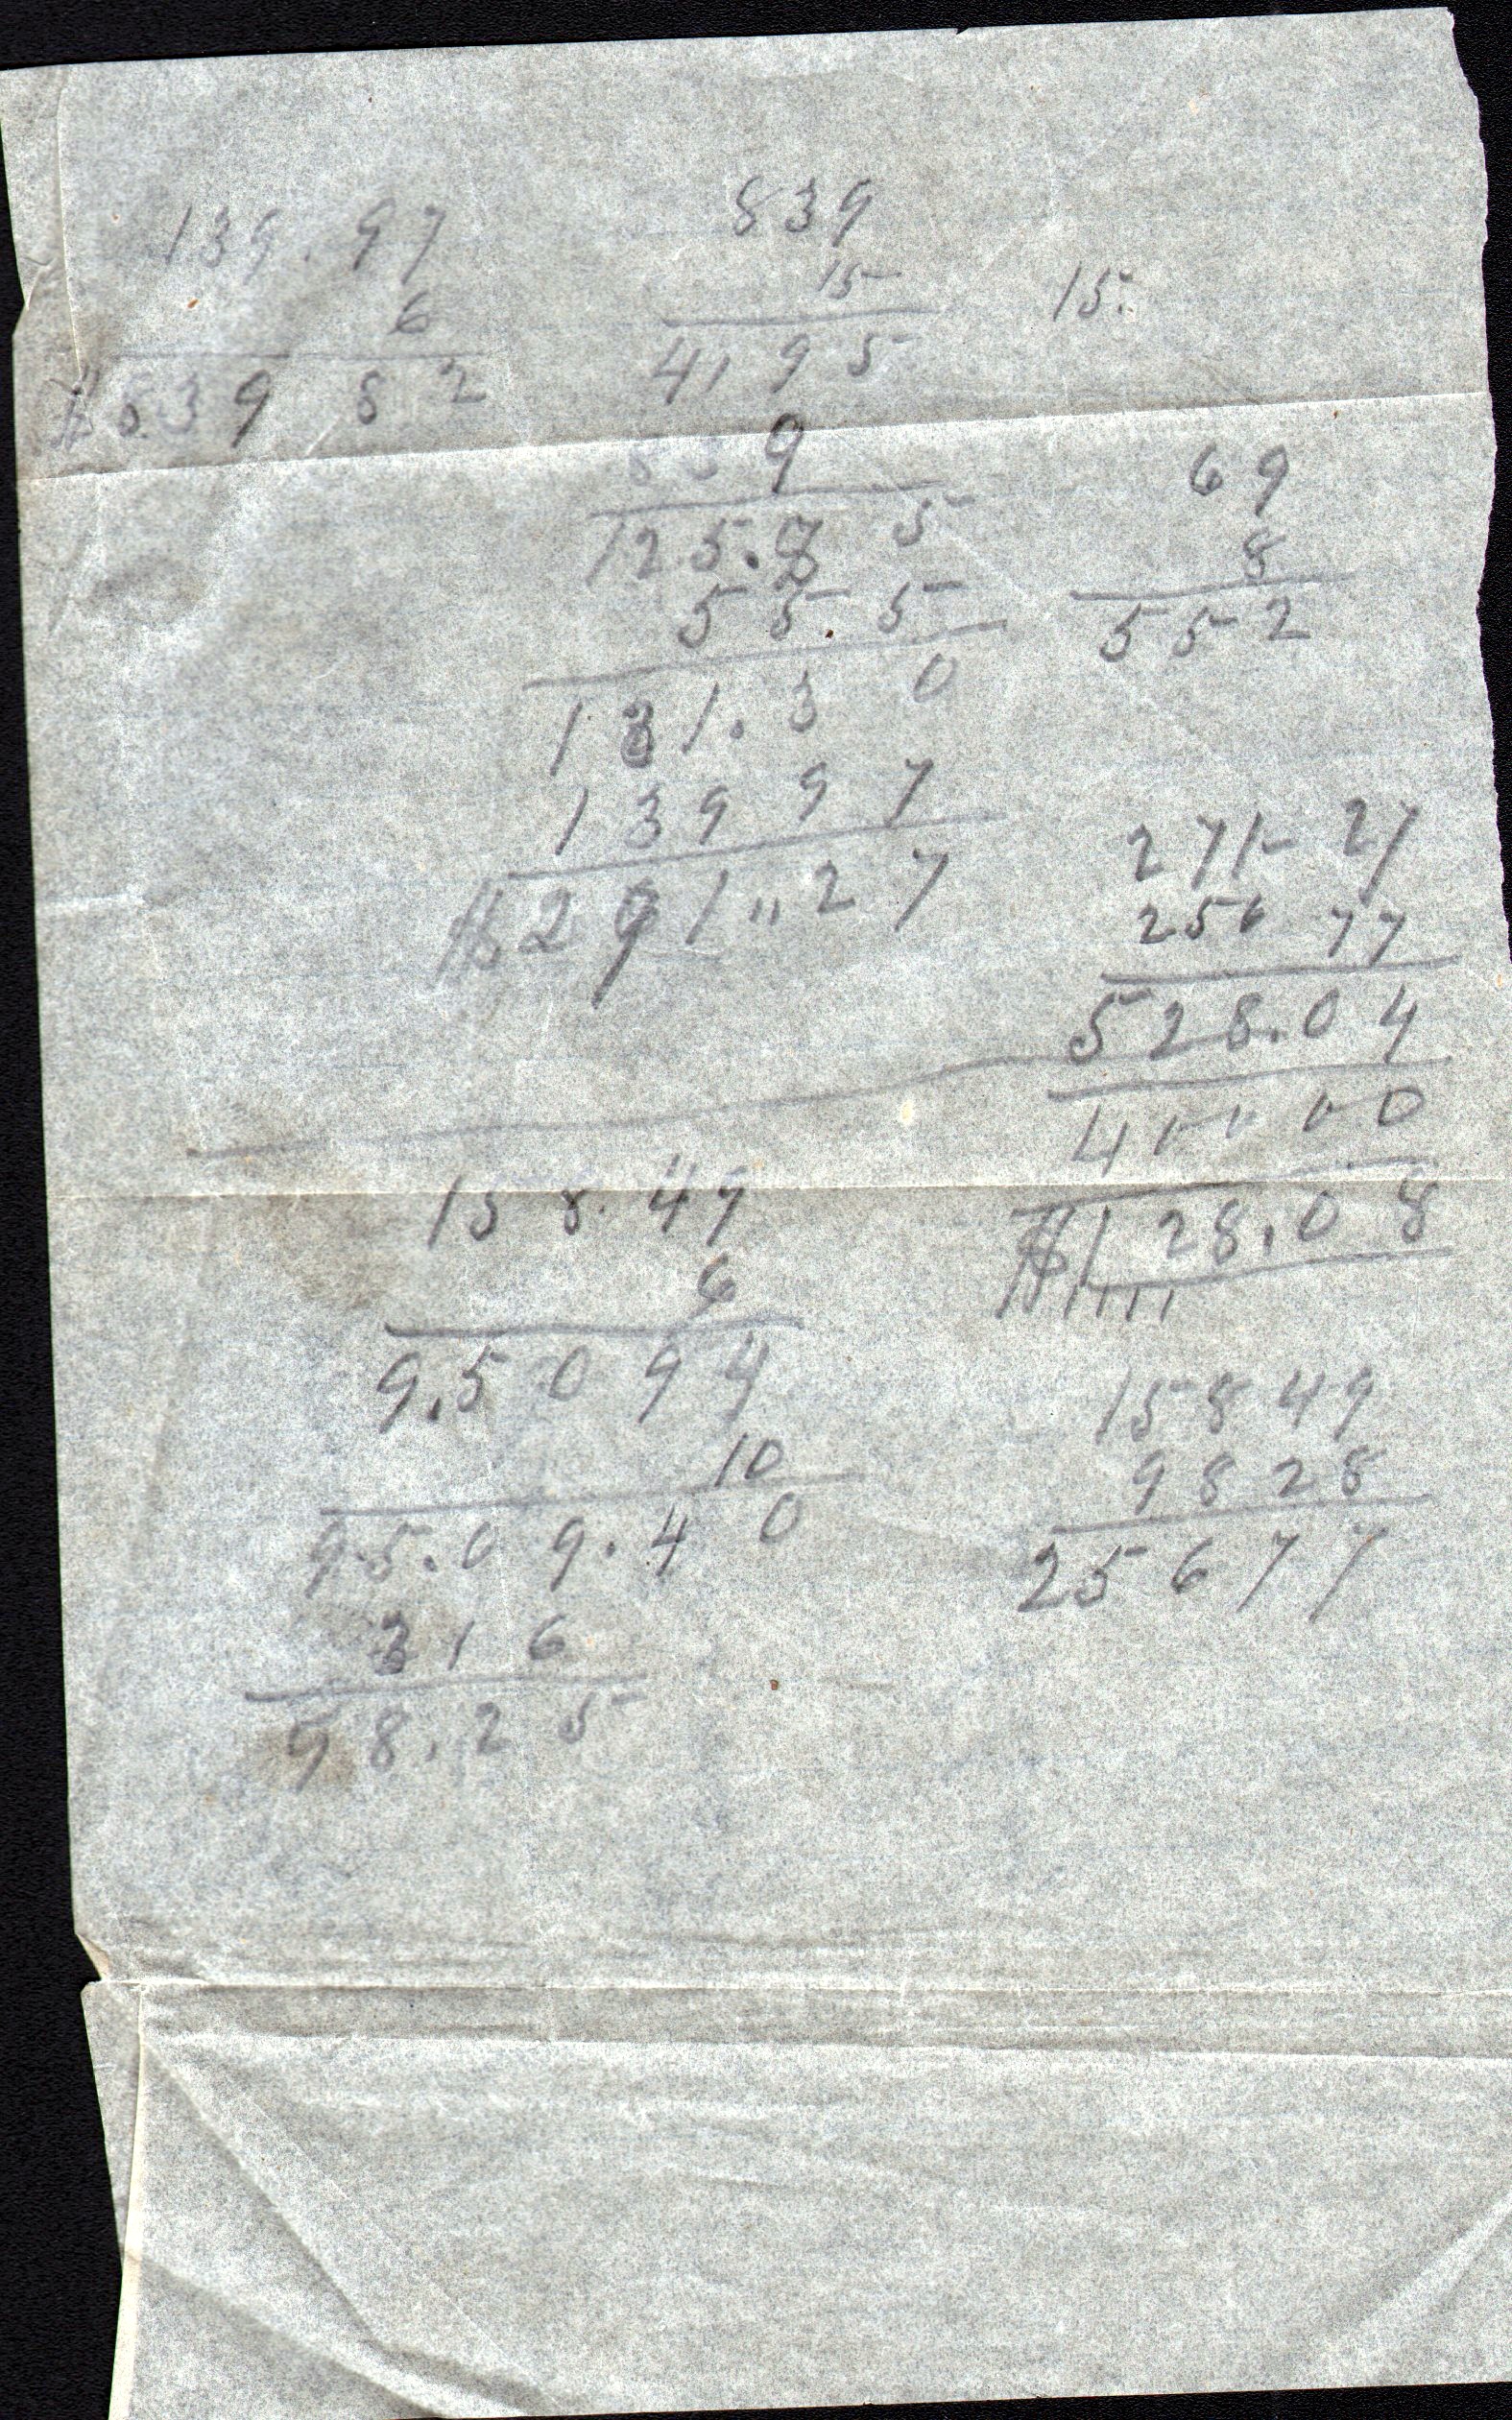 139.97
6
$839 82
839
15
4195
839
125.85
5 5.5
131.30
139 97
$271„27
15.
69
8
552
271- 27
256 77
528.04
4 - - - 0
$128.08
158.49
6
9.5094
10
95.09.40
316
98.25
158 49
98 28
256 77